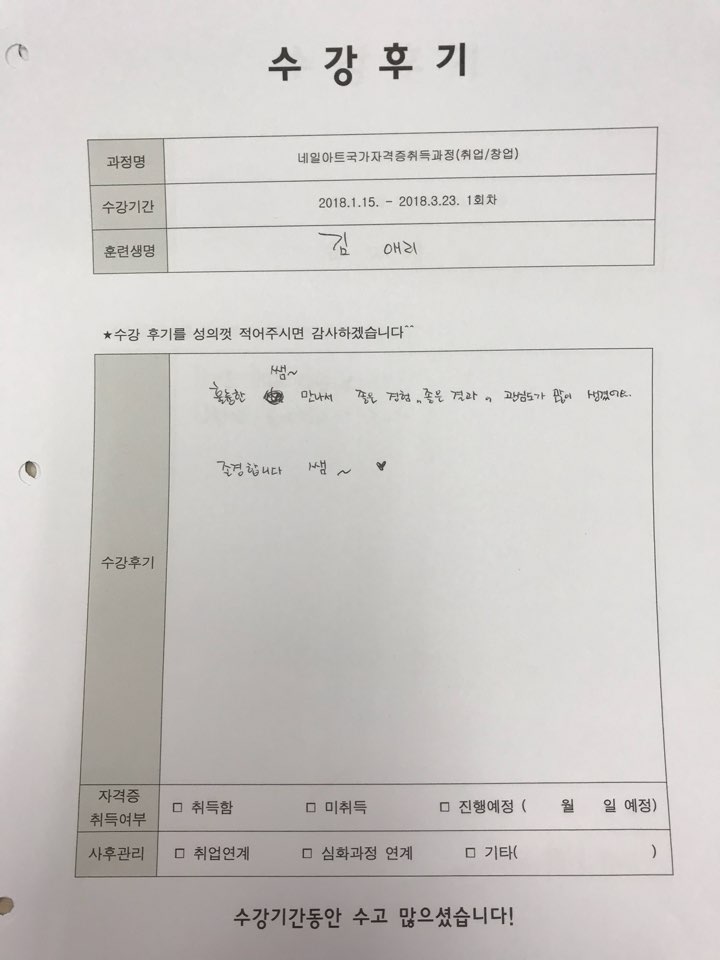 수 강 후 기
과정명 네일아트국가자격증취득과정(취업/창업)
수강기간 2018.1.15. - 2018.3.23. 1회차
훈련생명 김 애리
★수강 후기를 성의껏 적어주시면 감사하겠습니다^^
쌤~
훌륭한 만나서 좋은 경험,, 좋은 결과,, 관심도가 많이 생겼어요.
존경합니다 쌤~ ♥
수강후기
자격증
취득여부 □ 취득함 □ 미취득 □ 진행예정 ( 월 일 예정)
사후관리 □ 취업연계 □ 심화과정 연계 □ 기타( )
수강기간동안 수고 많으셨습니다!